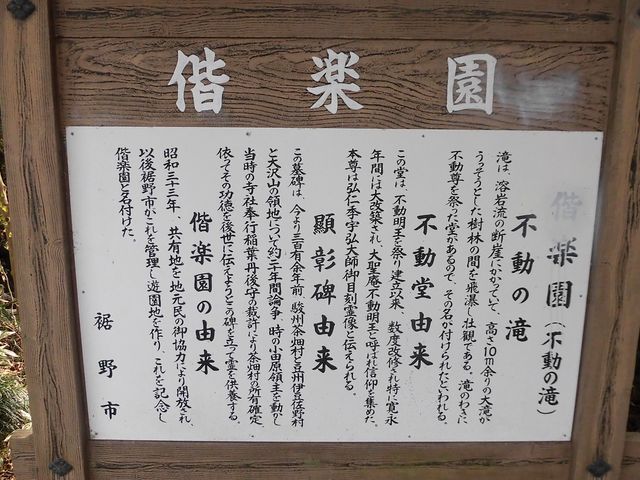 偕楽園
偕楽園(不動の滝)
不動の滝
滝は、溶岩流の断崖にかかっていて、高さ10m余りの大滝が
うっそうとした樹林の間を飛瀑し壮観である。滝のわきに
不動尊を祭った堂があるので、その名が付けられたといわれる。
不動堂由来
この堂は、不動明王を祭り建立以来、数度改修され特に寛永
年間には大改築され、大聖庵不動明王と呼ばれ信仰を集めた。
本尊は弘仁季宇弘大師御目刻霊像と伝えられる。
顕彰碑由来
この墓碑は、今より三百有余年前、駿州茶畑村と豆州伊豆佐野村
と大沢山の領地について約二千年間論争、時の小田原領主を動かし
当時の寺社奉行稲葉丹後守の裁許により茶畑村の所有確定
依てその功徳を後世に伝えようとこの碑を立って霊を供養する。
偕楽園の由来
昭和三十三年、共有地を地元民の御協力により開放され、
以後裾野市がこれを管理し遊園地を作り、これを記念し
偕楽園と名付けた。
裾野市